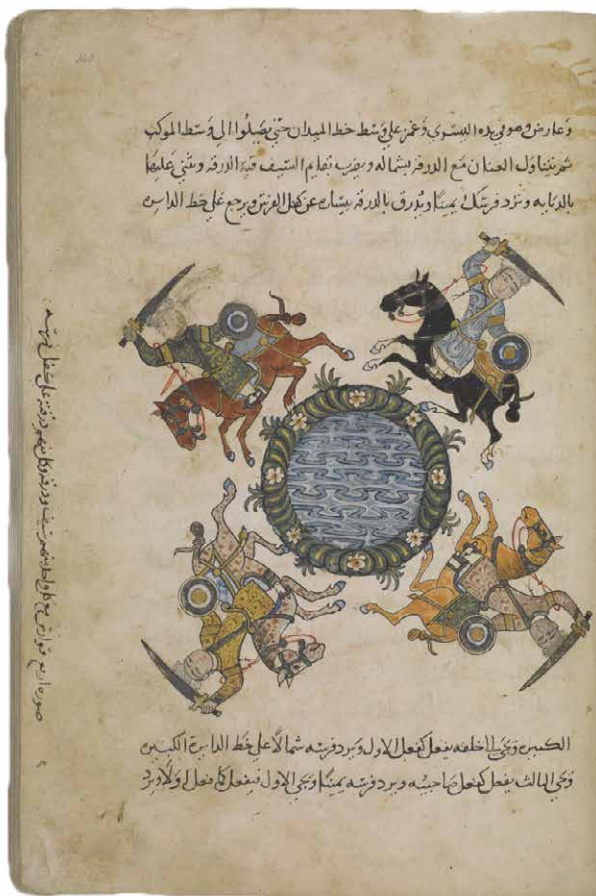 وعارض وهو في يده اليسرى وغمز على وسط خط الميدان حتى يصلوا الى وسط الموكب
ثم يتناول العنان مع الدرقة بشماله ويضرب السيف الدرقة ويثني عليها
ويرد فرسك يمينا ويدرق بالدرقة يساره عن كفل الفرس ويرجع على خط الدايرة
صورة اربع فوارس مع كل واحد منهم سيف ودرقة وكل منهم درقته على كفل فرسه
الكبيرة ويجي خلفه يفعل كفعل الاول ويرد فرسه شمالا على خط الدايرة الكبيرة
ويجي الثالث يفعل كفعل صاحبيه ويرد فرسه يمينا ويجي الاول فيفعل كما فعل اولا ويرد